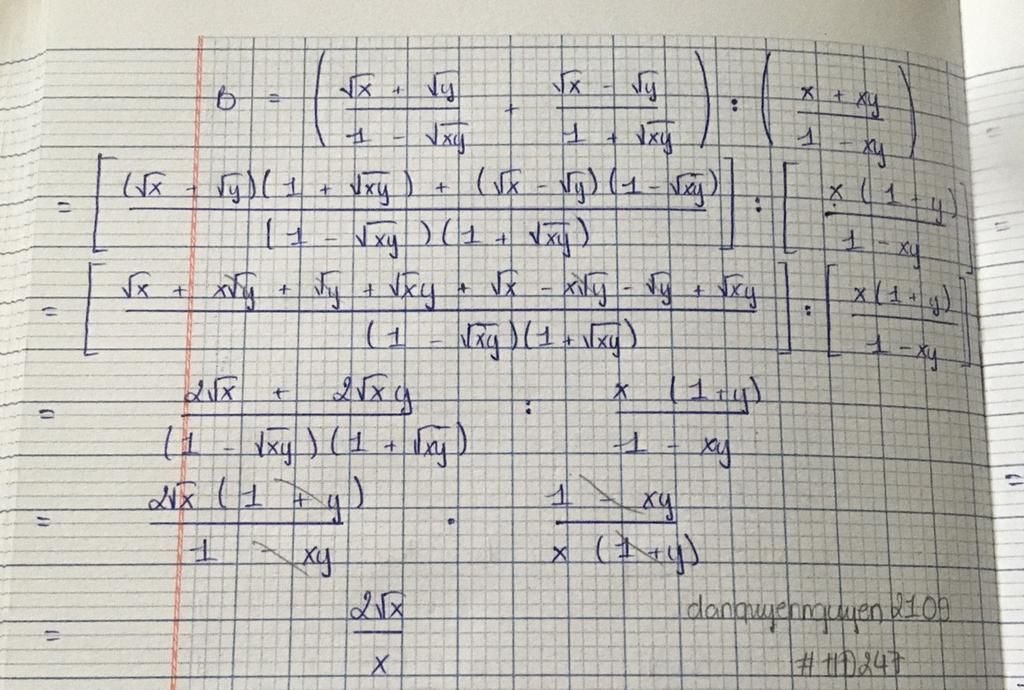 B = ( (√x + √y)/(1 - √xy) + (√x - √y)/(1 + √xy) ) : ( (x + xy)/(1 - xy) )
= [ ((√x + √y)(1 + √xy) + (√x - √y)(1 - √xy))/((1 - √xy)(1 + √xy)) ] : [ (x(1 + y))/(1 - xy) ] =
= [ (√x + x√y + √y + √xy + √x - x√y - √y + √xy)/((1 - √xy)(1 + √xy)) ] : [ (x(1 + y))/(1 - xy) ]
= (2√x + 2√x y)/((1 - √xy)(1 + √xy)) : (x (1+y))/(1 - xy)
= (2√x (1 + y))/(1 - xy) . (1 - xy)/(x (1+y)) =
= 2√x/x
danquyehnguyen2109